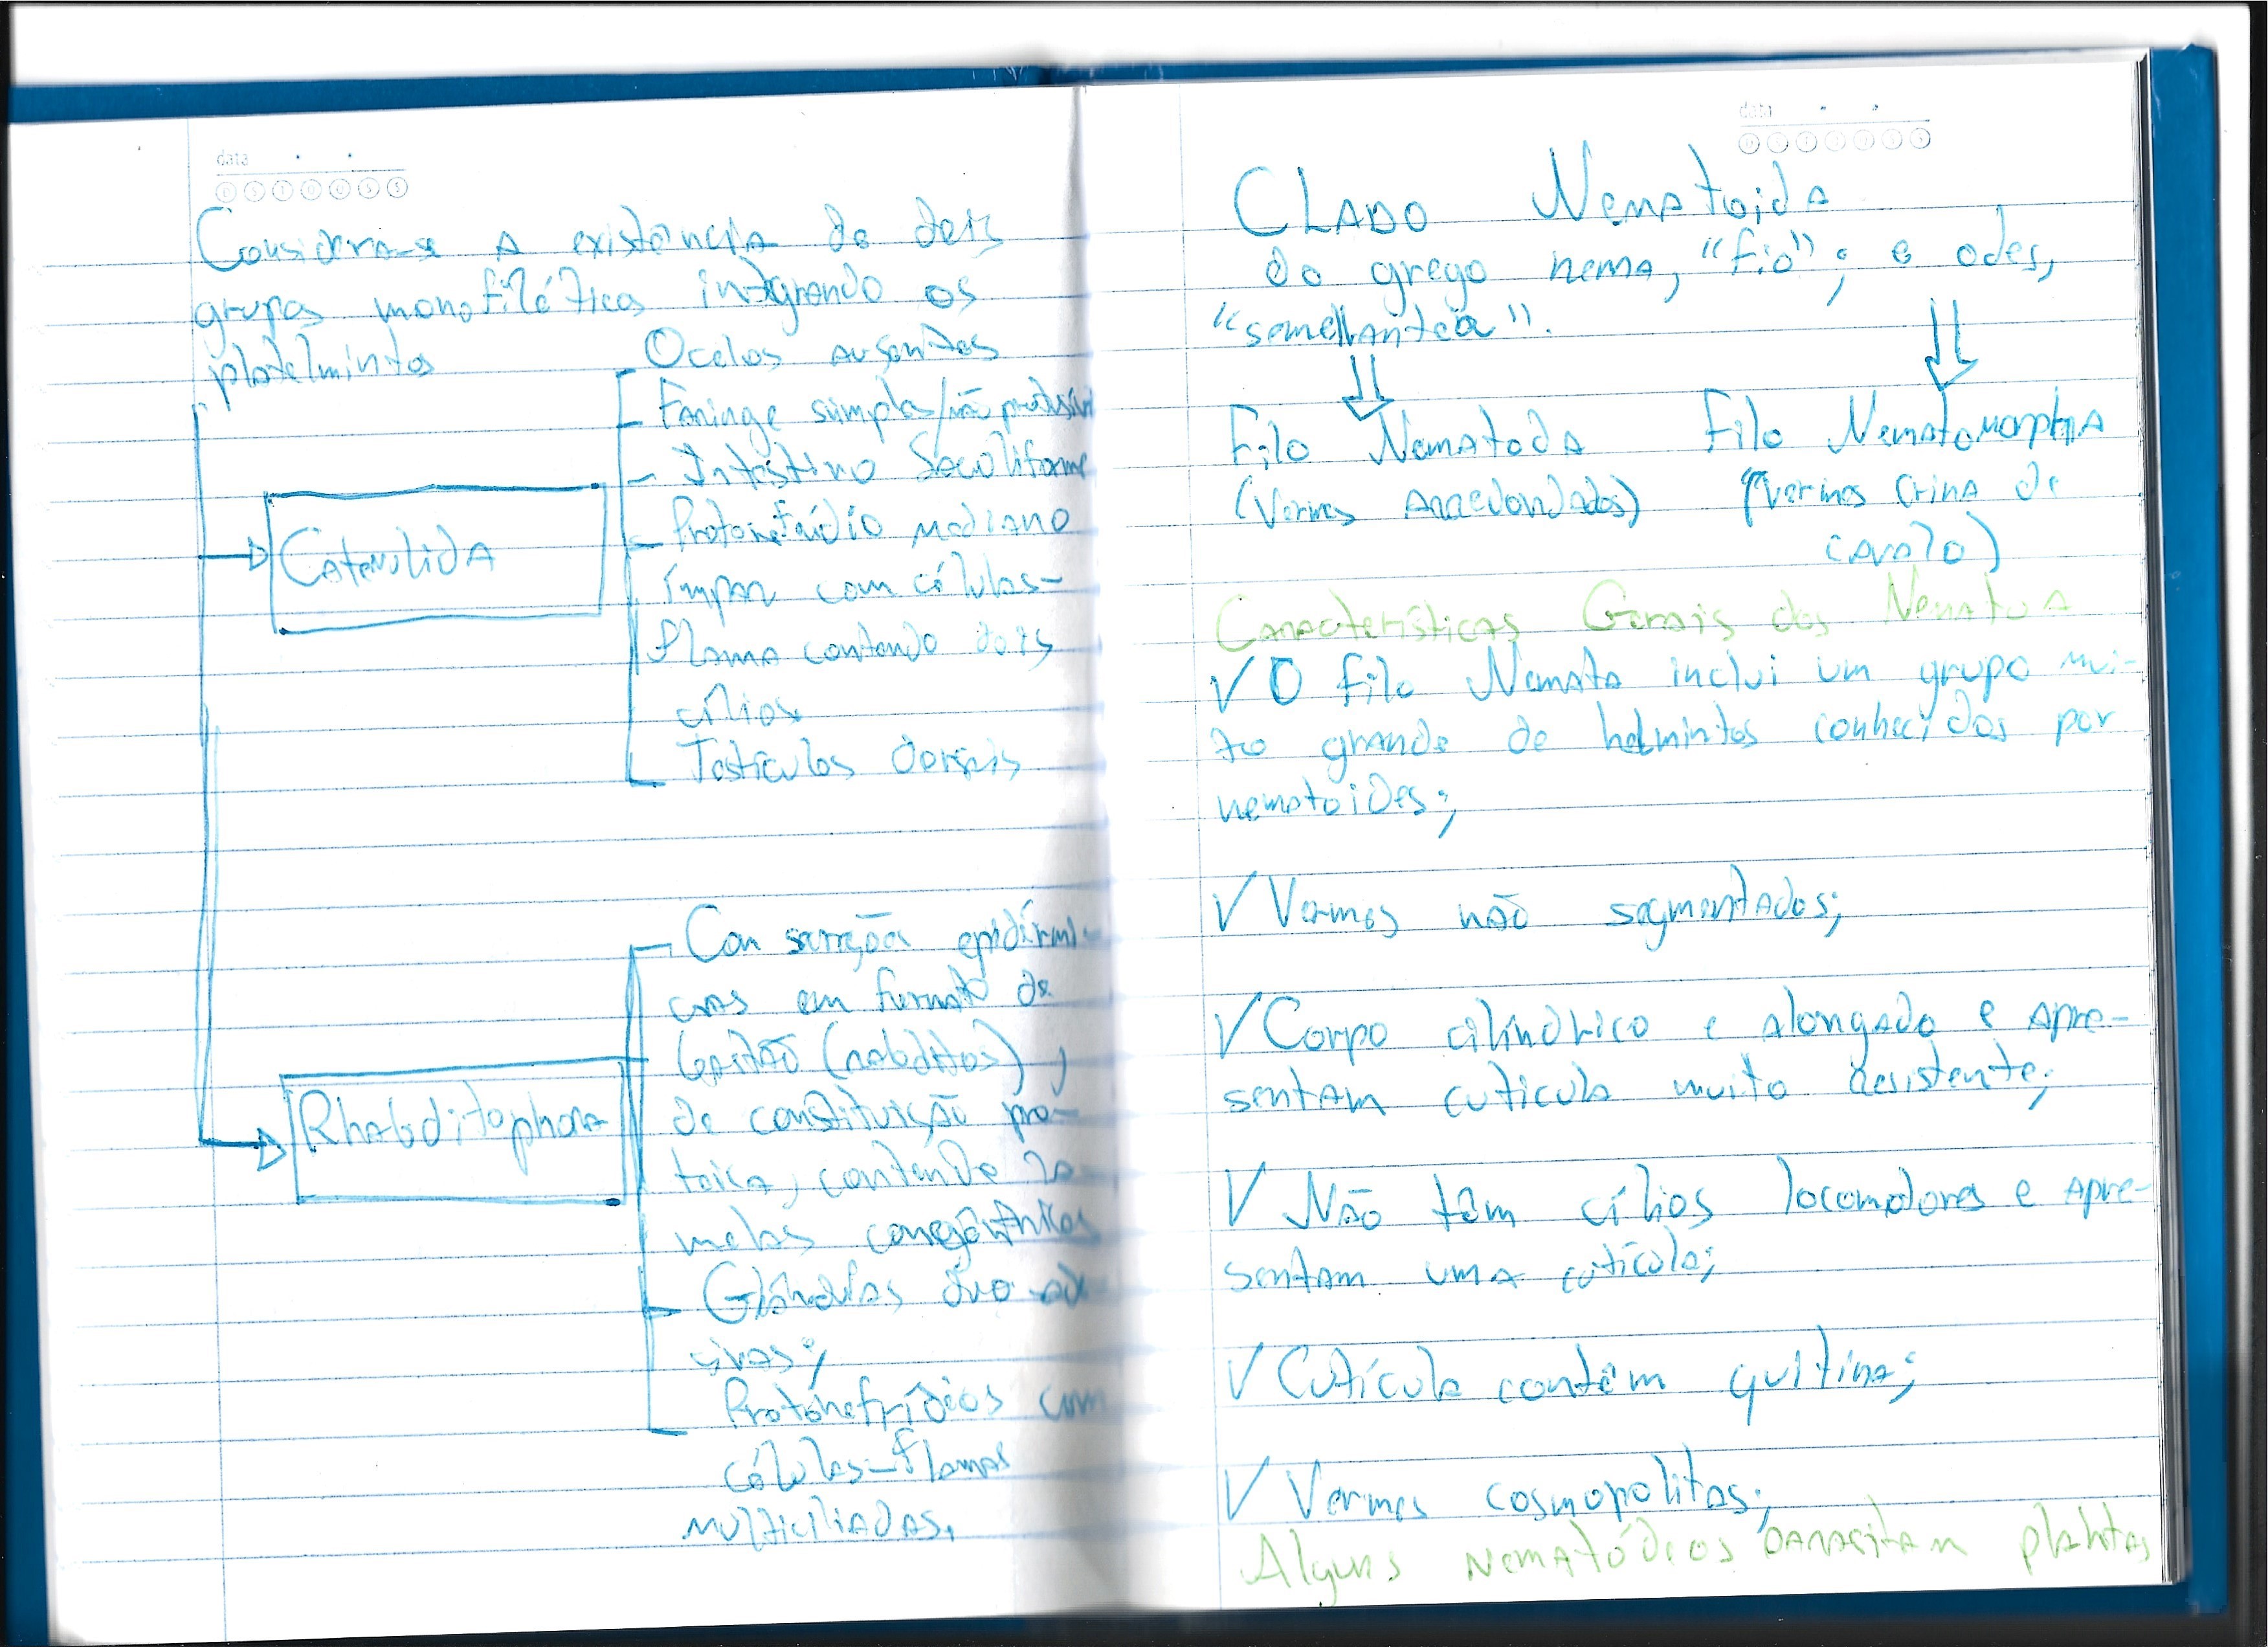 data
Considera-se a existência de dois
grupos monofiléticos integrando os
platelmintos
Ocelos ausentes
Faringe simples/não protusível
Intestino Saculiforme
Protonefrídio mediano
ímpar com células-
flama contendo dois
cílios
Testículos dorsais
Catenulida
Com secreções epidérmi-
cas em formato de
bastão (rabditos),
de constituição pro-
teica, contendo la-
melas concêntricas
Glândulas duo-ade
sivas;
Protonefrídios com
células-flamas
multiciliadas.
Rhabditophora
data
Clado Nematoida
do grego nema, "fio"; e odes,
"semelhante a".
Filo Nematoda Filo Nematomorpha
(Vermes Arredondados) (Vermes crina de
cavalo)
Características Gerais dos
✓ O filo Nemata inclui um grupo mui-
to grande de helmintos conhecidos por
nematoides;
✓ Vermes não segmentados;
✓ Corpo cilíndrico e alongado e apre-
sentam cutícula muito resistente;
✓ Não têm cílios locomotores e apre-
sentam uma cutícula;
✓ Cutícula contêm quitina;
✓ Vermes cosmopolitas;
Alguns nematódios parasitam plantas